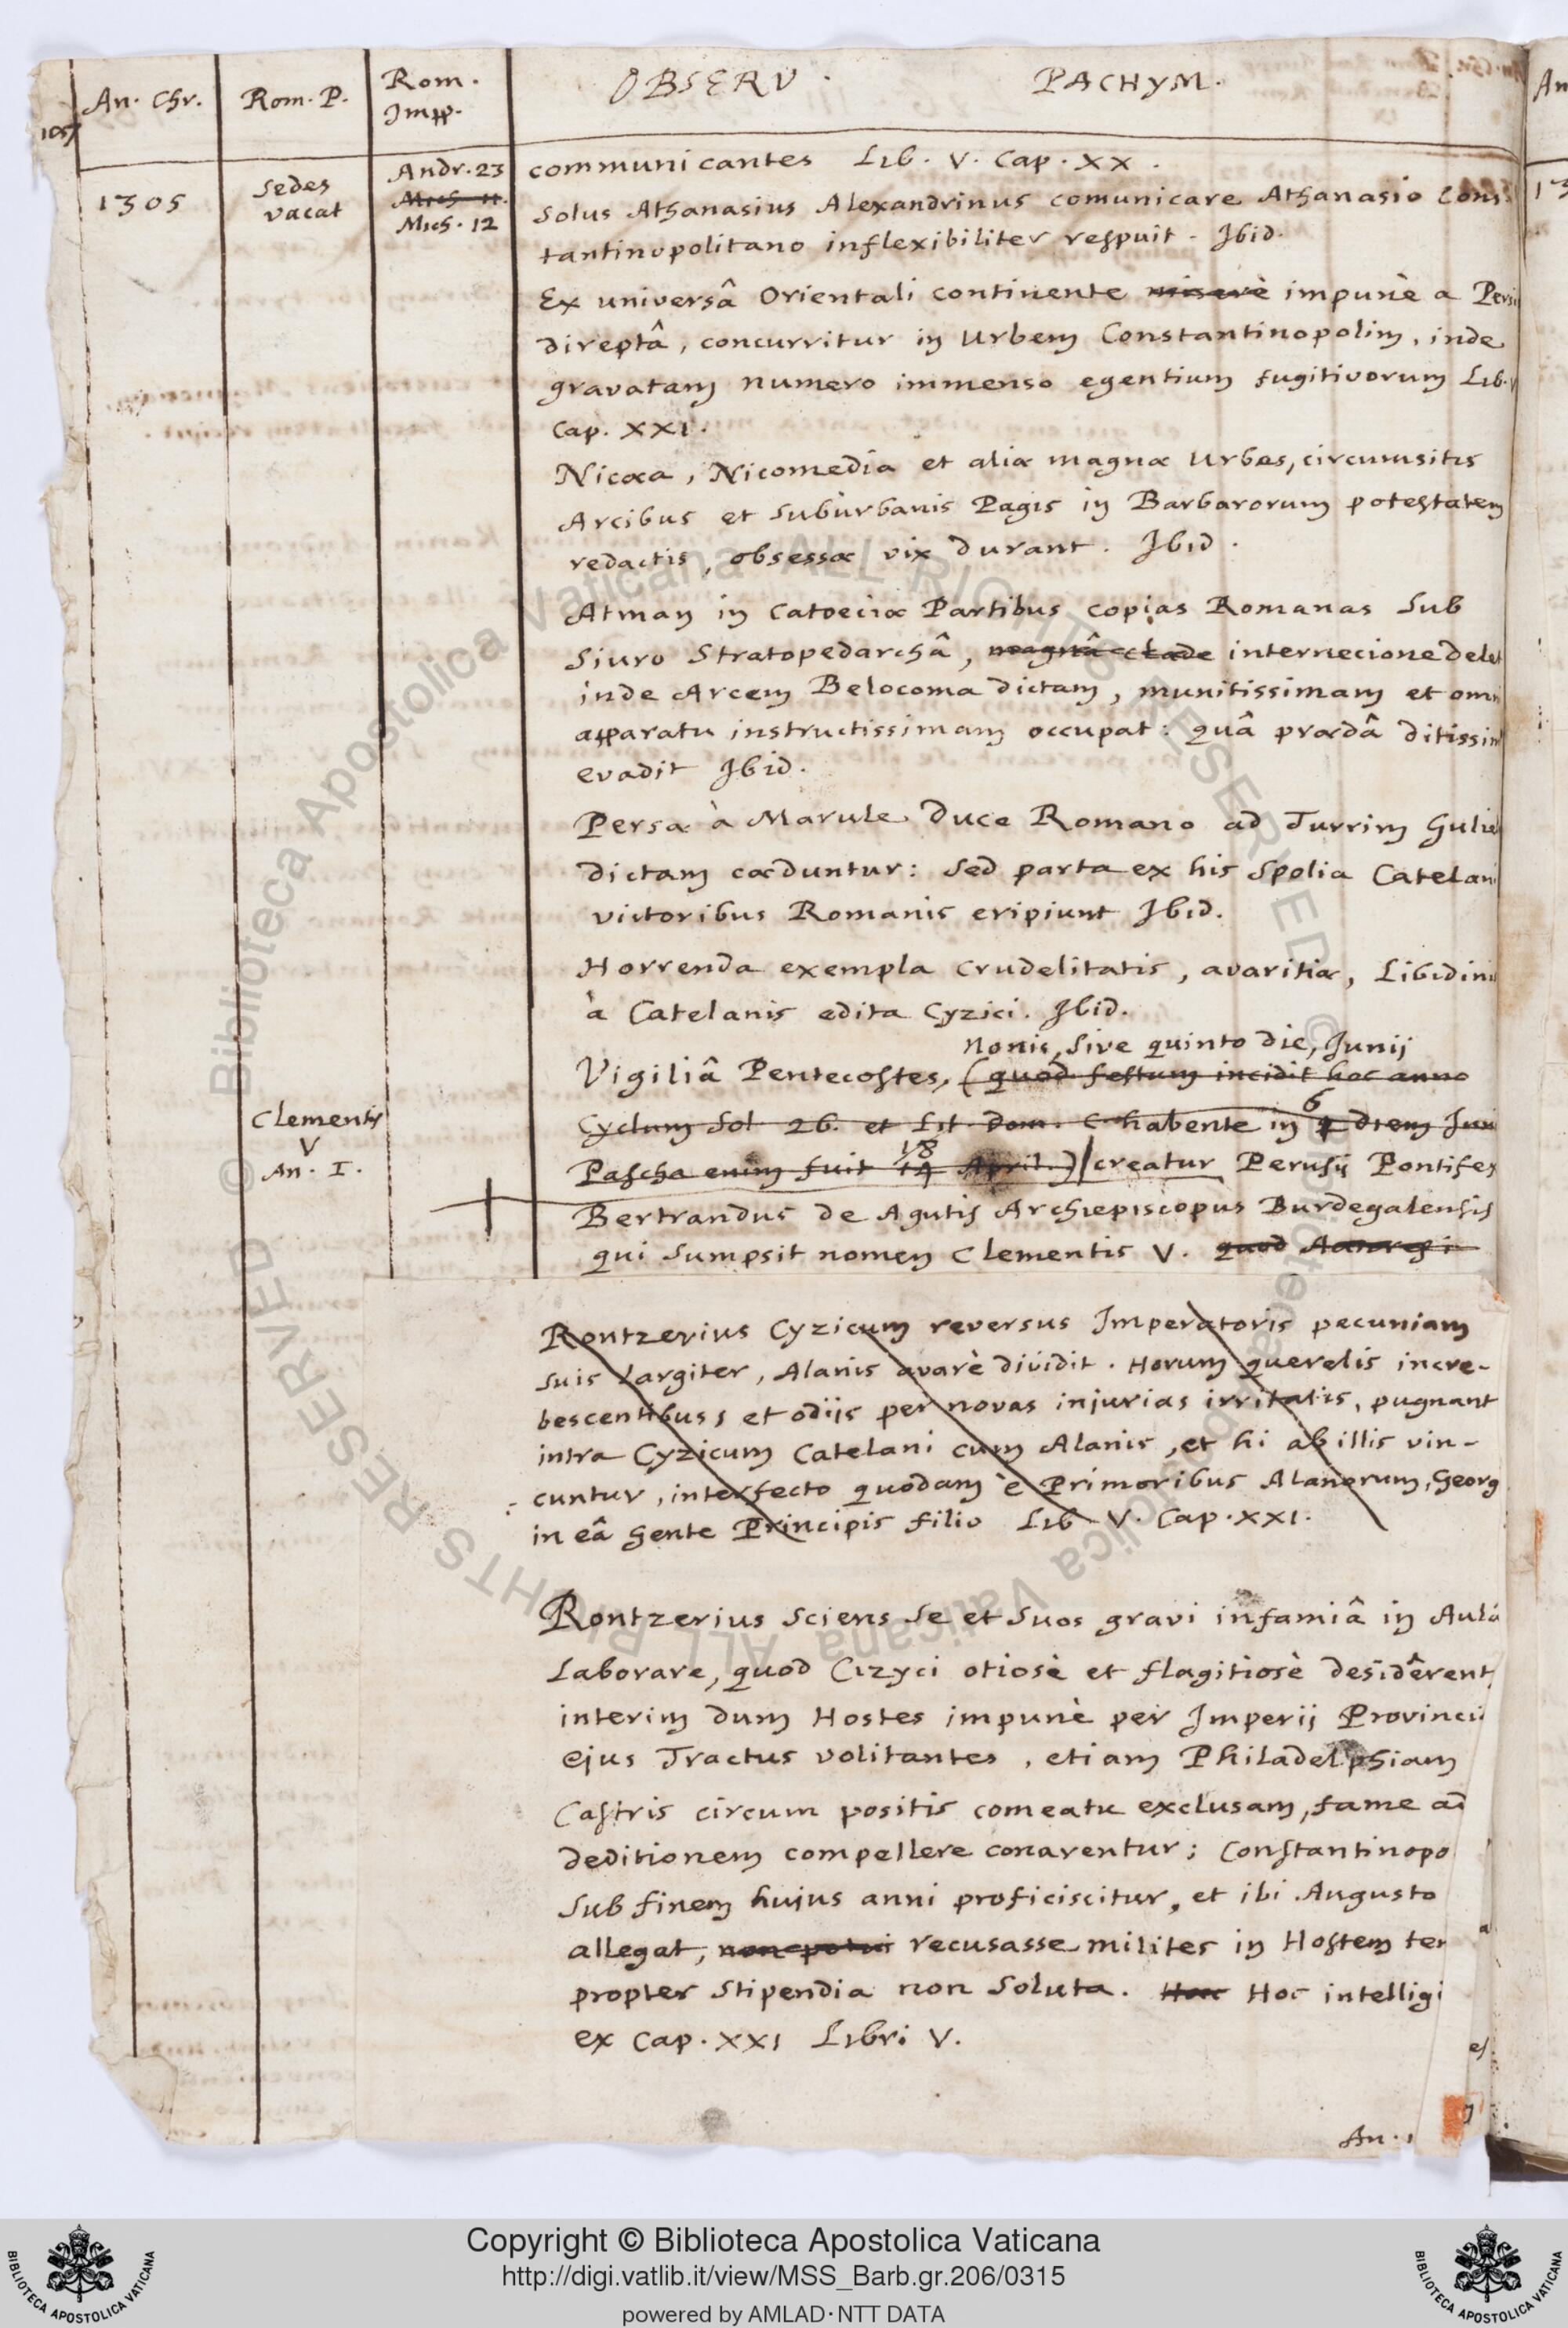 An. Chr.
Rom. P.
Rom.
Impp.
OBSERV.
PACHYM.
An
1305
Sedes
vacat
Andr. 23
Mich. 11.
Mich. 12
communicantes Lib. V. Cap. XX.
Solus Athanasius Alexandrinus comunicare Athanasio Cons
tantinopolitano inflexibiliter respuit. Ibid.
Ex universâ Orientali continente miserè impunè a Persi
direptâ, concurritur in Urbem Constantinopolim, inde
gravatam numero immenso egentium fugitivorum Lib. V
Cap. XXI.
Nicæa, Nicomedia et aliæ magnæ Urbes, circumsitis
Arcibus et suburbanis Pagis in Barbarorum potestatem
redactis, obsessæ vix durant. Ibid.
Atman in Catoeciæ Partibus copias Romanas sub
Siuro Stratopedarchâ, magnâ clade internecione delet
inde Arcem Belocoma dictam, munitissimam et omn
apparatu instructissimam occupat: quâ prædâ ditissim
evadit Ibid.
Persæ à Marule Duce Romano ad Turrim Gulie
dictam cæduntur: sed parta ex his spolia Catelani
victoribus Romanis eripiunt Ibid.
Horrenda exempla crudelitatis, avaritiæ, Libidini
à Catelanis edita Cyzici. Ibid.
Nonis, sive quinto die, Junij
Vigiliâ Pentecostes, (quod festum incidit hoc anno
Cyclum Sol 26. et Lit. Dom. C habente in 6 diem Juni
Pascha enim fuit 18 April.) creatur Perusij Pontifex
Clementis
V
An. I.
Bertrandus de Agutis Archiepiscopus Burdegalensis
qui sumpsit nomen Clementis V. quod
Rontzerius Cyzicum reversus Imperatoris pecuniam
suis Largiter, Alanis avarè dividit. Horum querelis incre-
bescentibus, et odijs per novas injurias irritatis, pugnant
intra Cyzicum Catelani cum Alanis, et hi ab illis vin-
cuntur, interfecto quodam è Primoribus Alanorum, Georg
in eâ Gente Principis filio Lib V. Cap. XXI.
Rontzerius sciens se et suos gravi infamiâ in Aulâ
Laborare, quod Cizyci otiosè et flagitiosè desiderent,
interim dum Hostes impunè per Imperij Provincii
ejus Tractus volitantes, etiam Philadelphiam
Castris circum positis comeatu exclusam, fame ad
deditionem compellere conarentur; Constantinopo
sub finem hujus anni proficiscitur, et ibi Augusto
allegat, non potui recusasse milites in Hostem ter
propter stipendia non soluta. Hoc Hoc intelligi
ex Cap. XXI Libri V.
An. 1
© Biblioteca Apostolica Vaticana ALL RIGHTS RESERVED © Biblioteca Apostolica Vaticana ALL RIGHTS RESERVED
BIBLIOTECA APOSTOLICA VATICANA
Copyright © Biblioteca Apostolica Vaticana
http://digi.vatlib.it/view/MSS_Barb.gr.206/0315
powered by AMLAD·NTT DATA
BIBLIOTECA APOSTOLICA VATICANA